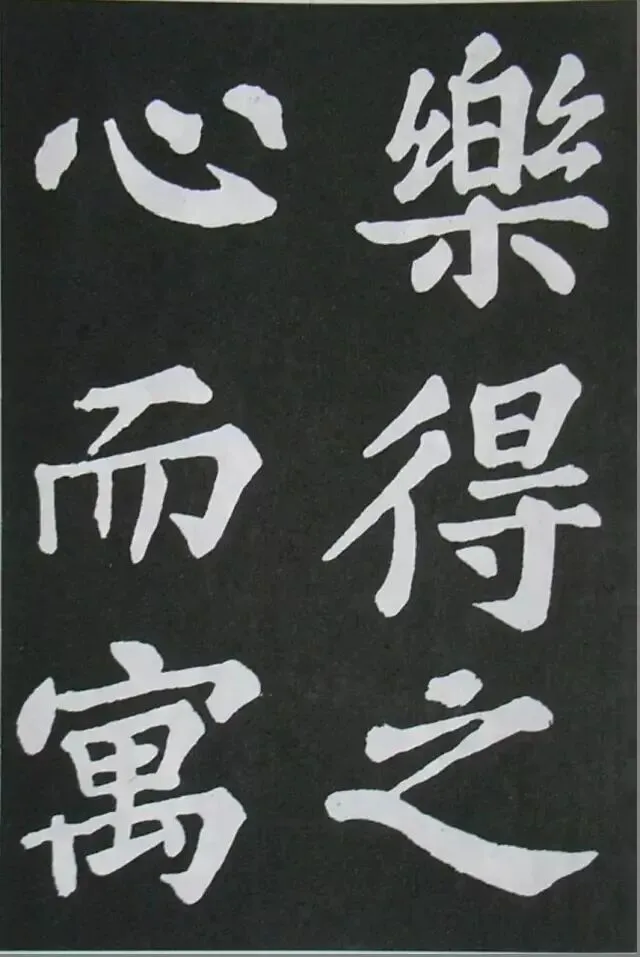 樂得之
心而寓